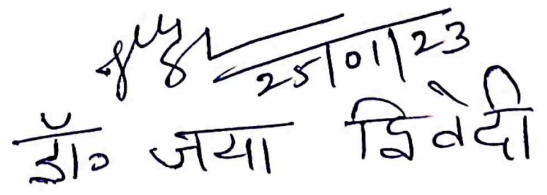 25/01/23
डॉ० जया द्विवेदी